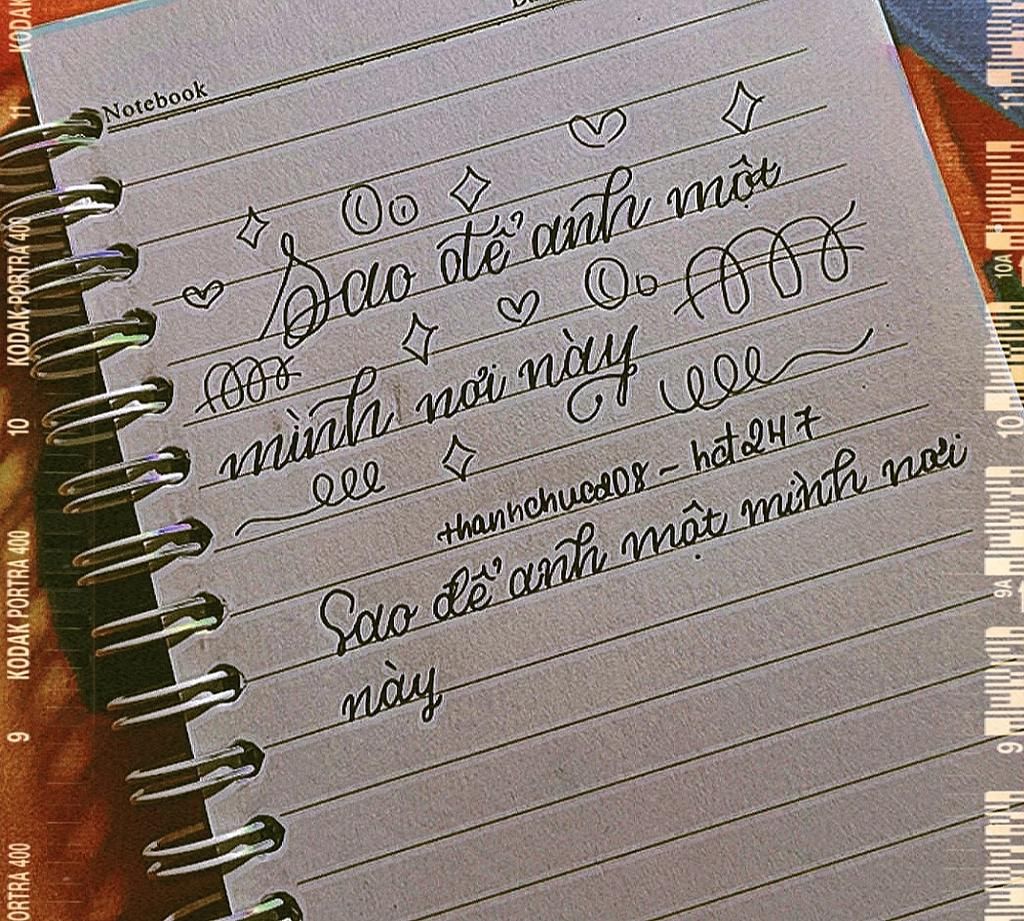 Notebook
Sao để anh một
mình nơi này
thanhchucd08 - hct247
Sao để anh một mình nơi
này
KODAK PORTRA 400
11
KODAK PORTRA 400
10
KODAK PORTRA 400
9
PORTRA 400
11
10A
10
9A
9